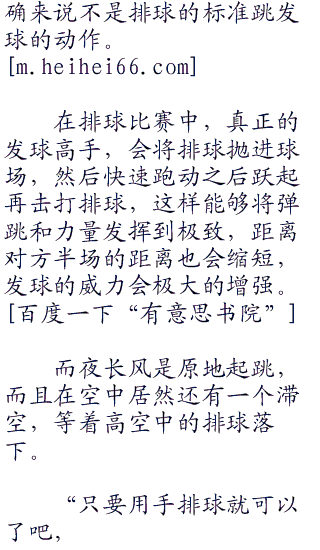 确来说不是排球的标准跳发
球的动作。
[m.heihei66.com]
在排球比赛中，真正的
发球高手，会将排球抛进球
场，然后快速跑动之后跃起
再击打排球，这样能够将弹
跳和力量发挥到极致，距离
对方半场的距离也会缩短，
发球的威力会极大的增强。
[百度一下“有意思书院”]
而夜长风是原地起跳，
而且在空中居然还有一个滞
空，等着高空中的排球落
下。
“只要用手排球就可以
了吧，